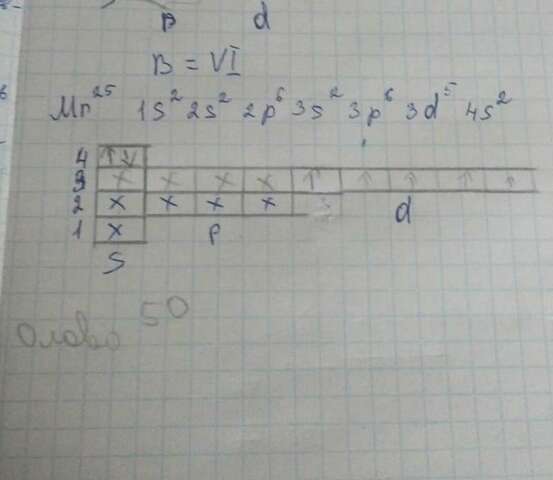 p d
B = VI
Mn²⁵ 1s² 2s² 2p⁶ 3s² 3p⁶ 3d⁵ 4s²
4 ↑↓
3 x x x x ↑ ↑ ↑ ↑ ↑
2 x x x x d
1 x p
S
Олово 50